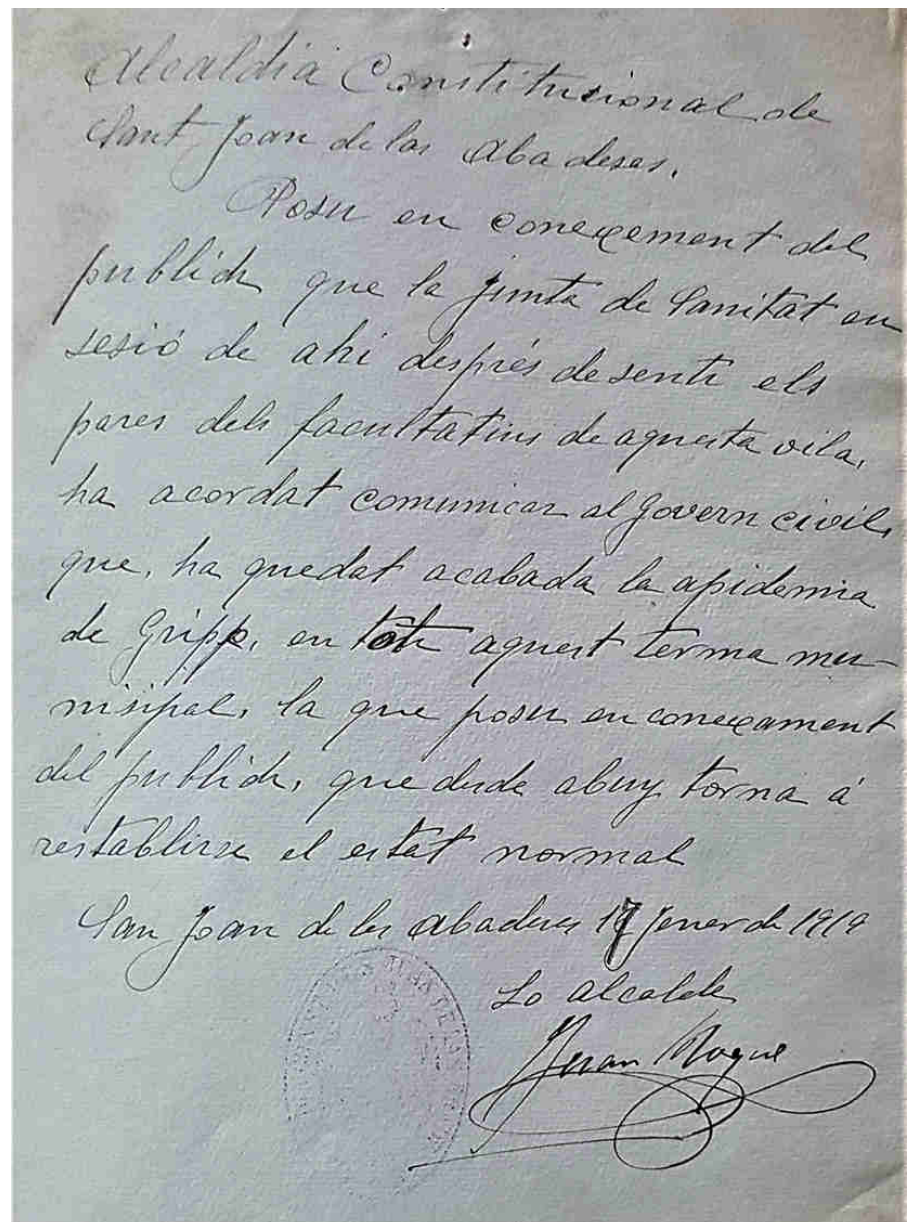 Alcaldia Constitucional de
Sant Joan de las Abadeses.
Posu en conexement del
publich que la junta de Sanitat en
sesió de ahi després de senti els
pares dels facultatius de aquesta vila,
ha acordat comunicar al Govern civil,
que, ha quedat acabada la apidemia
de Gripp, en tot aquest terma mu-
nisipal, la que posu en conexament
del publich, que desde abuy torna á
restablirse el estat normal
San Joan de les Abadeses 17 Jener de 1919
Lo alcalde
Juan Nogue